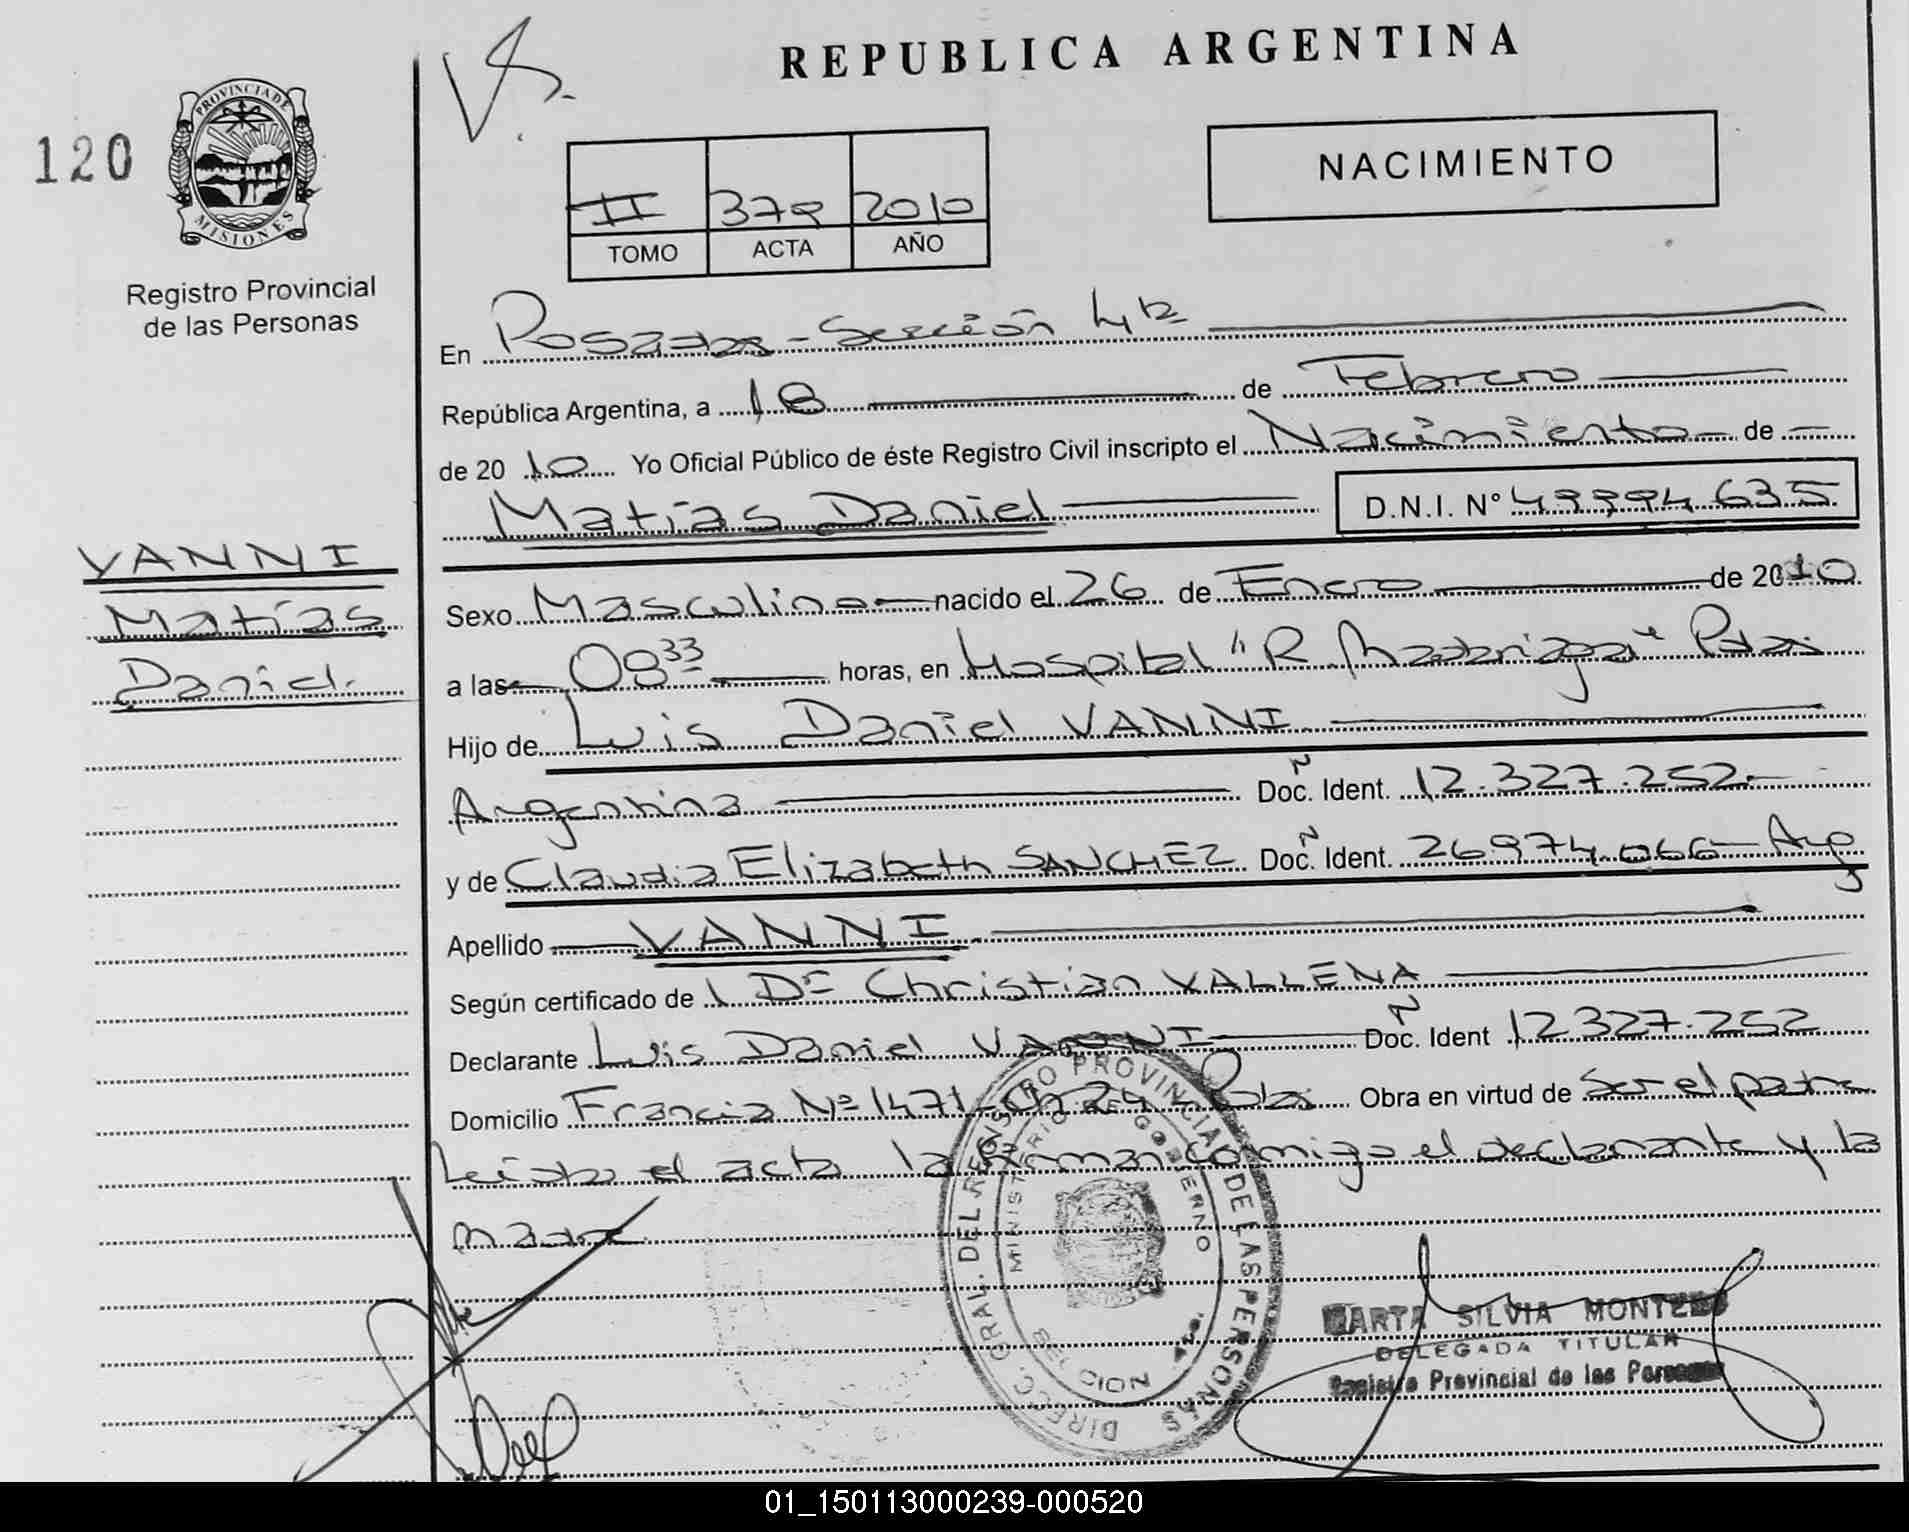 REPUBLICA ARGENTINA
120
PROVINCIA DE
MISIONES
Registro Provincial
de las Personas
II 379 2010
TOMO ACTA AÑO
NACIMIENTO
En Posadas - Sección 4ta
República Argentina, a 18 de Febrero
de 2010 Yo Oficial Público de éste Registro Civil inscripto el Nacimiento de
Matías Daniel D.N.I. Nº 635
VANNI
Matías
Daniel.
Sexo Masculino nacido el 26 de Enero de 2010
a las 08 33 horas, en Hospital "R. Madariaga" Pdas
Hijo de Luis Daniel VANNI
Argentina Doc. Ident. Nº 12.327.252
y de Claudia Elizabeth SANCHEZ Doc. Ident. Nº 26974.066 - Arg
Apellido VANNI
Según certificado de Dr Christian VALLENA
Declarante Luis Daniel VANNI Doc. Ident Nº 12327.252
Domicilio Francia Nº 1471 - Ch 24 - Pdas Obra en virtud de Ser el padre
Leída el acta la firman conmigo el declarante y la
madre
DIREC. GRAL. DEL REGISTRO PROVINCIAL DE LAS PERSONAS
MINISTERIO DE GOBIERNO
MARTA SILVIA MONTERO
DELEGADA TITULAR
Registro Provincial de las Personas
01_150113000239-000520